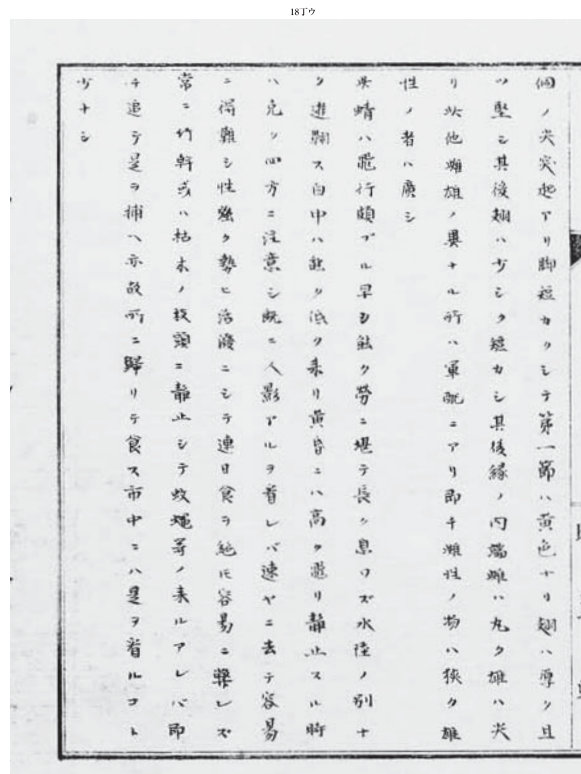 18丁ウ
個ノ尖突起アリ脚短カクシテ第一節ハ黄色ナリ翅ハ厚ク且
ツ堅シ其後翅ハ少シク短カシ其後縁ノ内端雌ハ丸ク雄ハ尖
リ此他雌雄ノ異ナル所ハ軍配ニアリ即チ雌性ノ物ハ狭ク雄
性ノ者ハ廣シ
此蜻ハ飛行頗ブル早ク能ク労ニ堪テ長ク息ワズ水陸ノ別ナ
ク遊翔ス日中ハ能ク低ク来リ黄昏ニハ高ク飛リ静止スル時
ハ先ツ四方ニ注意シ既ニ人影アルヲ看レバ速ヤニ去テ容易
ニ得難シ性強ク勢ヒ活溌ニシテ連日食ヲ絶ㇳモ容易ニ斃レズ
常ニ竹幹或ハ枯木ノ枝頭ニ静止シテ蚊蠅等ノ来ルアレバ即
チ追テ是ヲ捕ヘ亦故所ニ歸リテ食ス市中ニハ是ヲ看ルコト
少ナシ